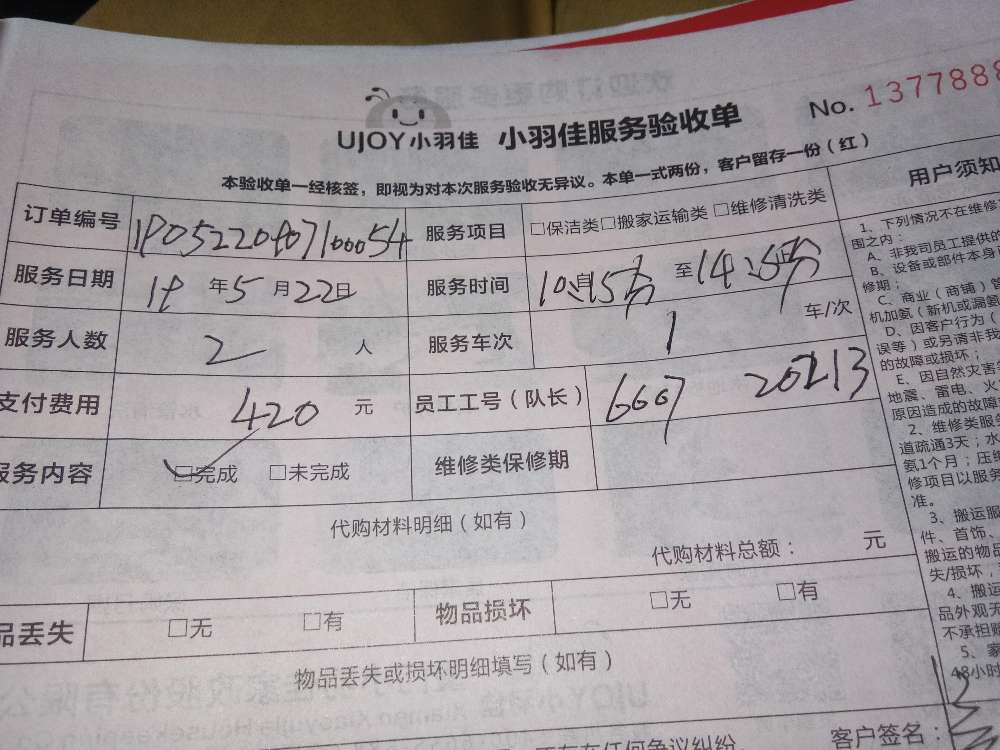 No. 1377888
UJOY小羽佳 小羽佳服务验收单
本验收单一经核签，即视为对本次服务验收无异议。本单一式两份，客户留存一份（红）
订单编号 服务项目 □保洁类□搬家运输类 □维修清洗类
服务日期 18 年 5 月 22 日 服务时间 至
服务人数 2 人 服务车次 1 车/次
支付费用 420 元 员工工号（队长） 6667 20213
服务内容 □完成 □未完成 维修类保修期
代购材料明细（如有）
代购材料总额： 元
品丢失 □无 □有 物品损坏 □无 □有
物品丢失或损坏明细填写（如有）
客户签名：
用户须知
1、下列情况不在维修
围之内：
A、非我司员工提供的
B、设备或部件本身
修期；
C、商业（商铺）管
机加氨（新机或漏氨
D、因客户行为（
误等）或另请非我
的故障或损坏；
E、因自然灾害
地震、雷电、火
原因造成的故障
2、维修类服
道疏通3天；水
氨1个月；压缩
修项目以服务
准。
3、搬运服
件、首饰、
搬运的物品
失/损坏，
4、搬运
品外观无
不承担赔
5、家
48小时